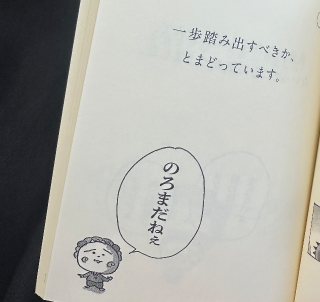 一歩踏み出すべきか、
とまどっています。
のろまだねぇ